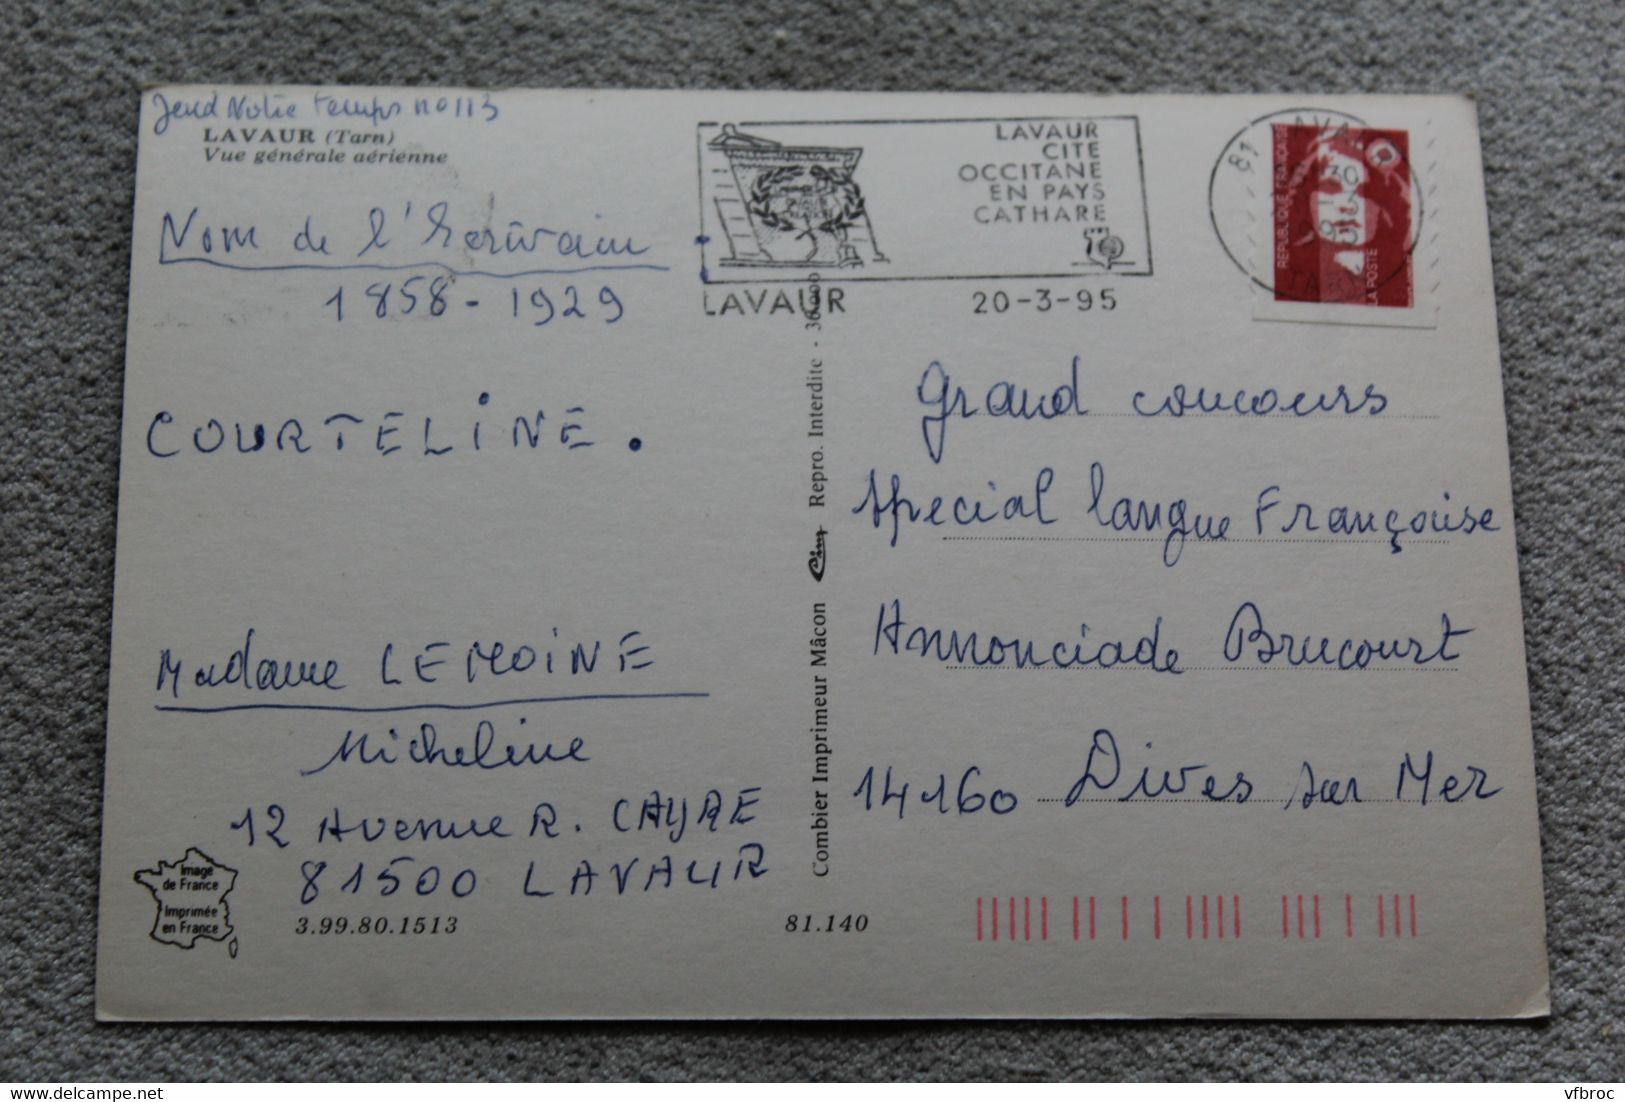 Jeud Notre temps no 113
LAVAUR (Tarn)
Vue générale aérienne
Nom de l'Ecrivain
1858-1929
COURTELINE.
Madame LEMOINE
Micheline
12 Avenue R. CAYRE
81500 LAVAUR
Image
de France
Imprimée
en France
3.99.80.1513
81.140
Combier Imprimeur Mâcon Cim Repro. Interdite -
LAVAUR
CITE
OCCITANE
EN PAYS
CATHARE
LAVAUR 20-3-95
81 LAVAUR
TARN
REPUBLIQUE FRANÇAISE
LA POSTE
Grand concours
special langue Française
Annonciade Brucourt
14160 Dives sur Mer
vfbroc